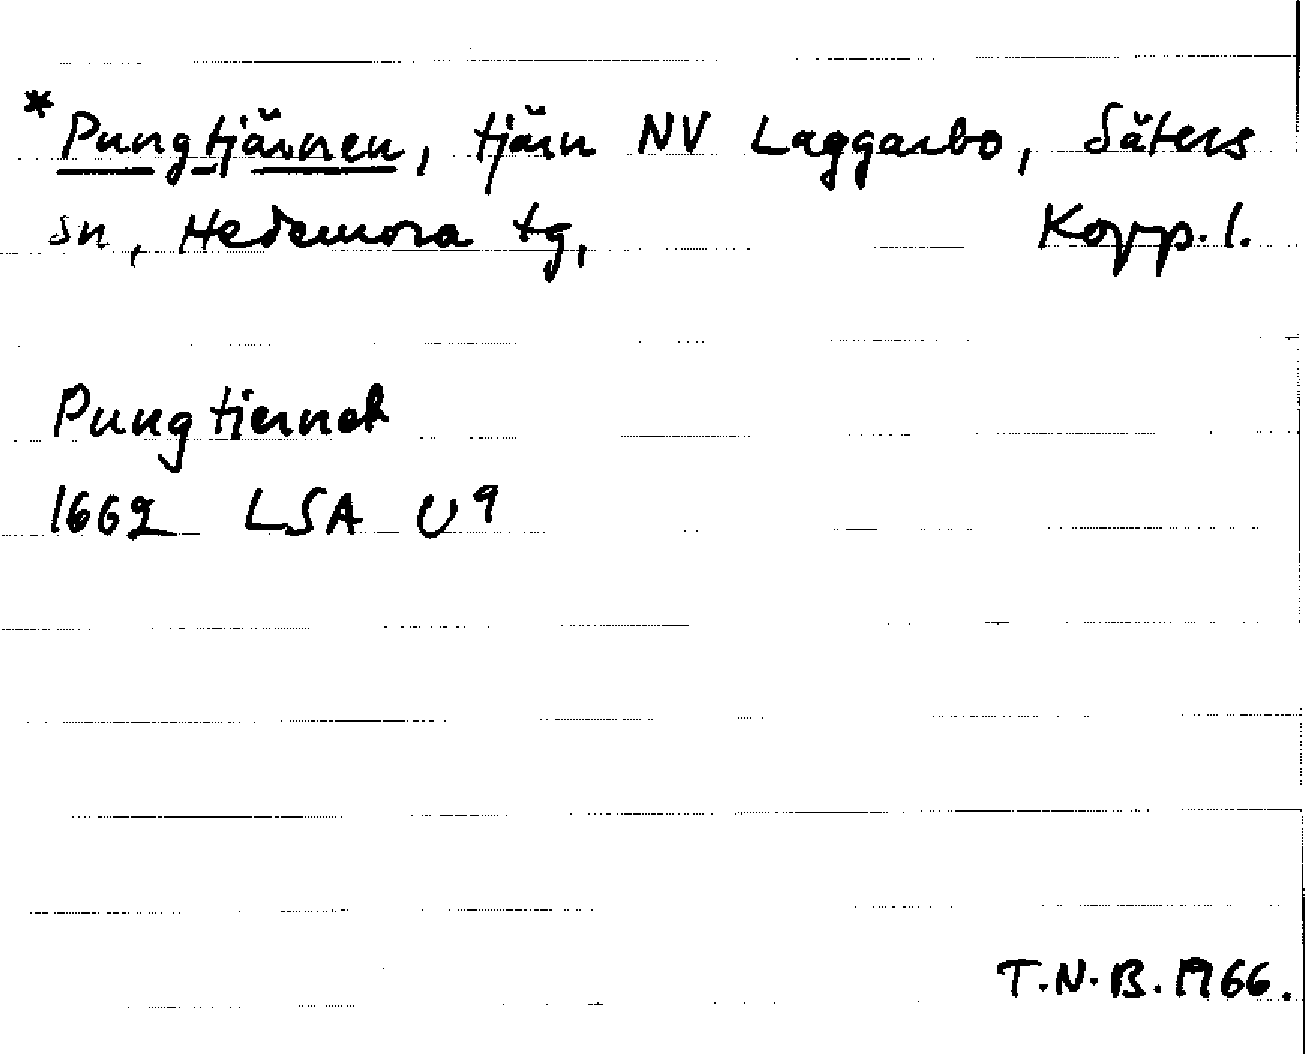 *Pungtjärnen, tjärn NV Laggarbo, Säters
sn, Hedemora tg, Kopp. l.
Pungtiernet
1662 LSA U 9
T.N.B. 1966.